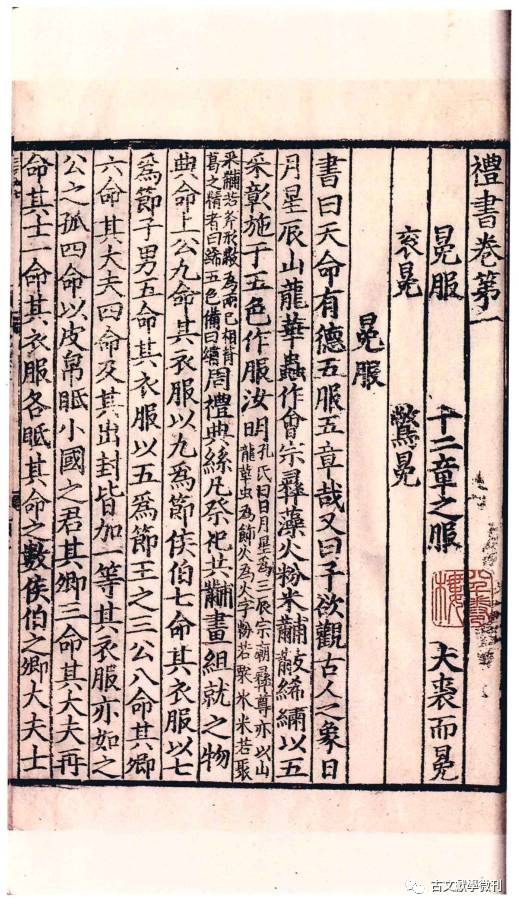 禮書卷第一
冕服 十二章之服 大裘而冕
袞冕 鷩冕
冕服
書曰天命有德五服五章哉又曰予欲觀古人之象日
月星辰山龍華蟲作會宗彝藻火粉米黼黻絺繡以五
采彰施于五色作服汝明孔氏曰日月星爲三辰宗廟彝尊亦以山
龍華虫爲飾火爲火字粉若粟冰米若聚
米黼若斧形黻爲兩己相背
葛之精者曰絺五色備曰繡周禮典絲凡祭祀共黼畫組就之物
典命上公九命其衣服以九爲節侯伯七命其衣服以七
爲節子男五命其衣服以五爲節王之三公八命其卿
六命其大夫四命及其出封皆加一等其衣服亦如之
公之孤四命以皮帛眡小國之君其卿三命其大夫再
命其士一命其衣服各眡其命之數侯伯之卿大夫士
古文獻學微刊